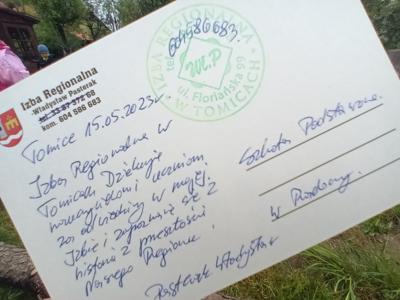 Izba Regionalna
Władysław Pasterak
kom. 604 586 683
604586683.
IZBA REGIONALNA
W TOMICACH
ul. Floriańska 99
tel.
Tomice 15.05.2023r.
Izba Regionalna w
Tomicach Dziękuję
nauczycielowi i uczniom
za odwiedziny w mojej
Izbie i zapoznanie się z
historią z przeszłości
Naszego Regionu,
Pasterak Władysław
Szkoła Podstawowa
w